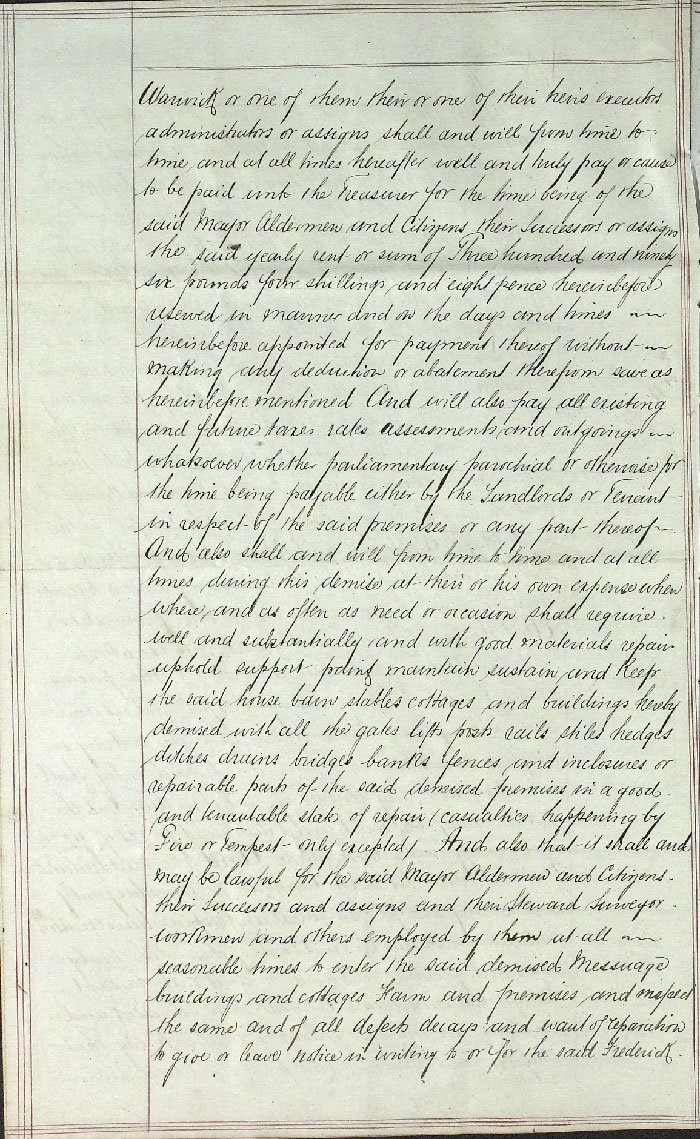 Warwick or one of them their or one of their heirs executors
administrators or assigns shall and will from time to
time and at all times hereafter well and truly pay or cause
to be paid unto the Treasurer for the time being of the
said Mayor Aldermen and Citizens their Successors or assigns
the said yearly rent or sum of Three hundred and ninety
six pounds four shillings and eight pence hereinbefore
reserved in manner and on the days and times
hereinbefore appointed for payment thereof without
making any deduction or abatement therefrom save as
hereinbefore mentioned And will also pay all existing
and future taxes rates assessments and outgoings
whatsoever whether parliamentary parochial or otherwise for
the time being payable either by the Landlords or Tenant
in respect of the said premises or any part thereof
And also shall and will from time to time and at all
times during this demise at their or his own expense when
where and as often as need or occasion shall require
well and substantially and with good materials repair
uphold support paint maintain sustain and keep
the said house barn stables cottages and buildings hereby
demised with all the gates lifts posts rails stiles hedges
ditches drains bridges banks fences and inclosures or
repairable parts of the said demised premises in a good
and tenantable state of repair (casualties happening by
Fire or Tempest only excepted) And also that it shall and
may be lawful for the said Mayor Aldermen and Citizens
their Successors and assigns and their Steward Surveyor
workmen and others employed by them at all
seasonable times to enter the said demised Messuage
buildings and cottages Farm and premises and inspect
the same and of all defects decays and want of reparation
to give or leave notice in writing to or for the said Frederick